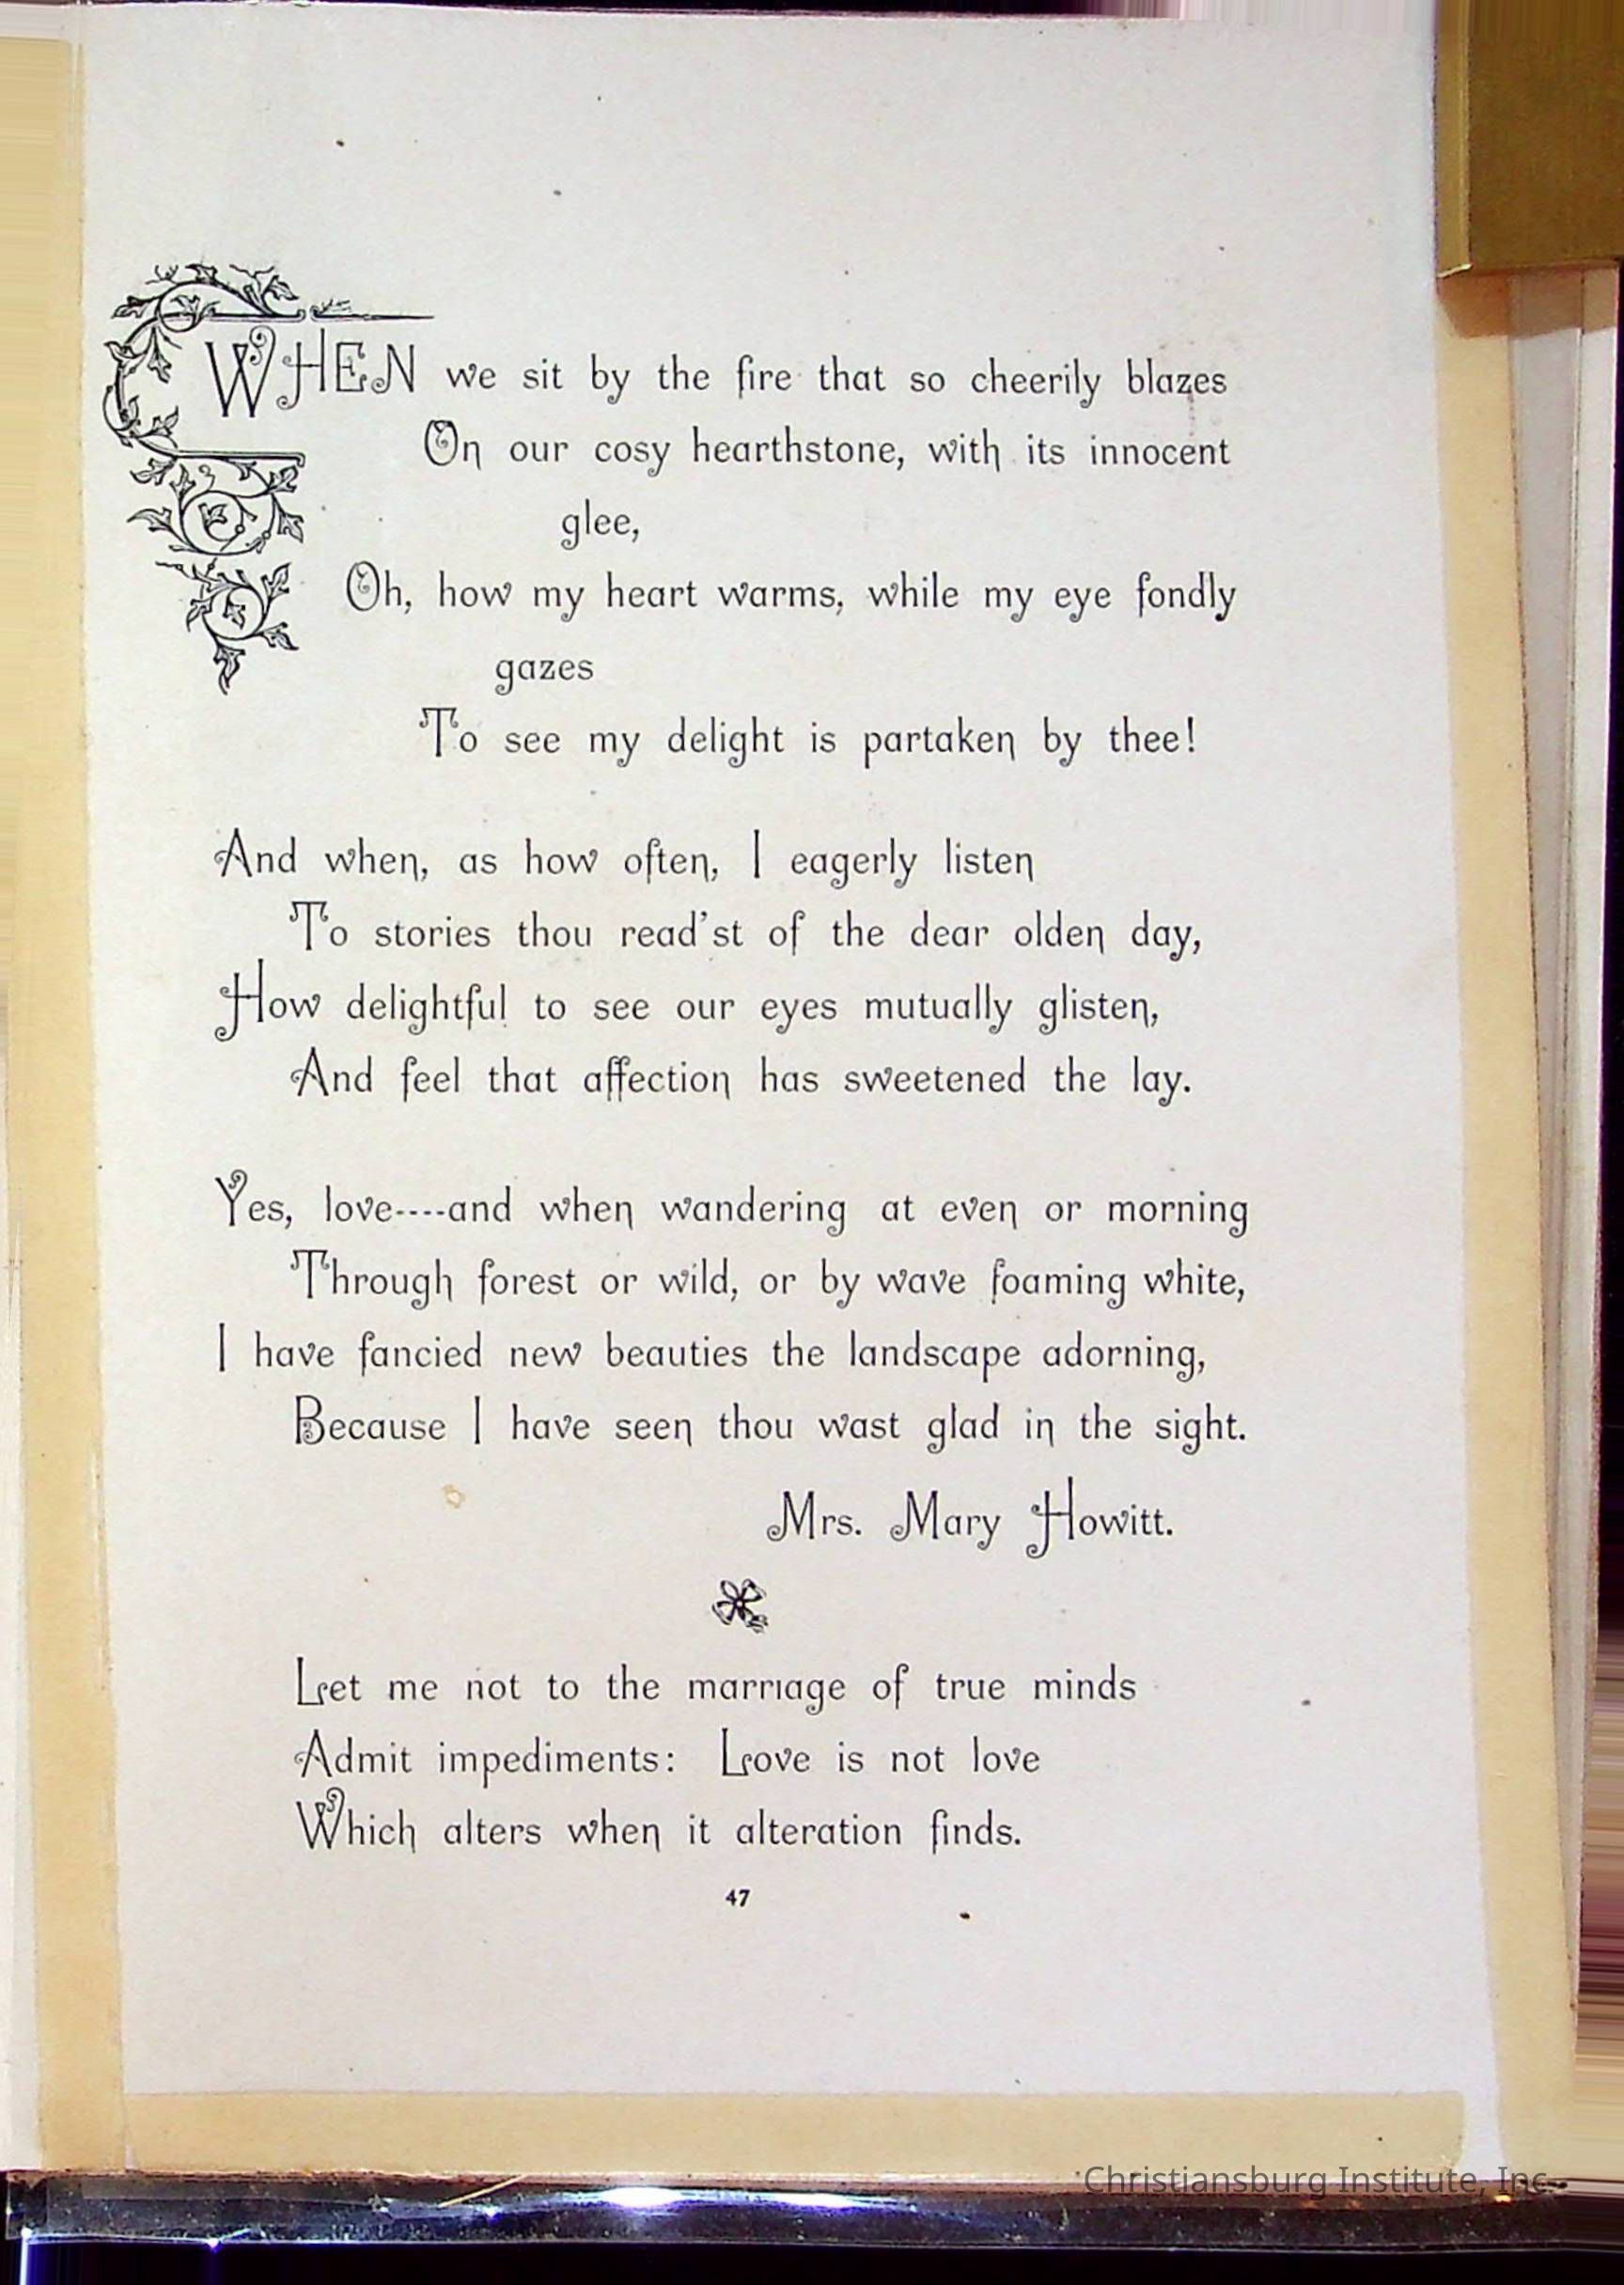 WHEN we sit by the fire that so cheerily blazes
On our cosy hearthstone, with its innocent
glee,
Oh, how my heart warms, while my eye fondly
gazes
To see my delight is partaken by thee!
And when, as how often, I eagerly listen
To stories thou read'st of the dear olden day,
How delightful to see our eyes mutually glisten,
And feel that affection has sweetened the lay.
Yes, love----and when wandering at even or morning
Through forest or wild, or by wave foaming white,
I have fancied new beauties the landscape adorning,
Because I have seen thou wast glad in the sight.
Mrs. Mary Howitt.
Let me not to the marriage of true minds
Admit impediments: Love is not love
Which alters when it alteration finds.
47
Christiansburg Institute, Inc.